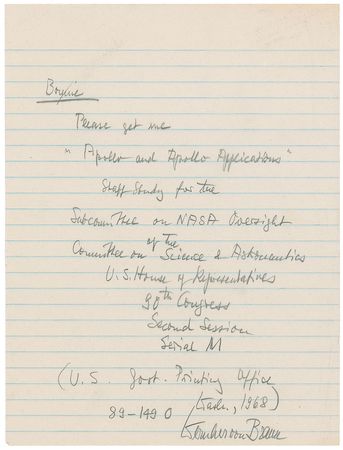 Bonnie
Please get me
"Apollo and Apollo Applications"
Staff Study for the
Subcommittee on NASA Oversight
of the
Committee on Science & Astronautics
U.S. House of Representatives
90th Congress
Second Session
Serial M
(U.S. Govt. Printing Office
Wash., 1968)
89-149 O
Wernher von Braun